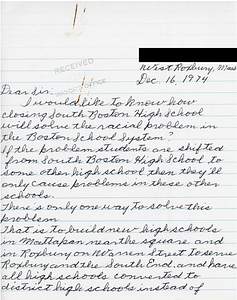 West Roxbury, Mass
Dec. 16, 1974
RECEIVED
MAYOR'S OFFICE
Dear Sir:
I would like to know how
closing South Boston High School
will solve the racial problem in
the Boston School System?
If the problem students are shifted
from South Boston High School to
some other high school then they'll
only cause problems in these other
schools.
There is only one way to solve this
problem
That is to build new high schools
in Mattapan near the square and
in Roxbury on Warren Street to serve
Roxbury and the South End, and have
all high schools converted to
district high schools instead of